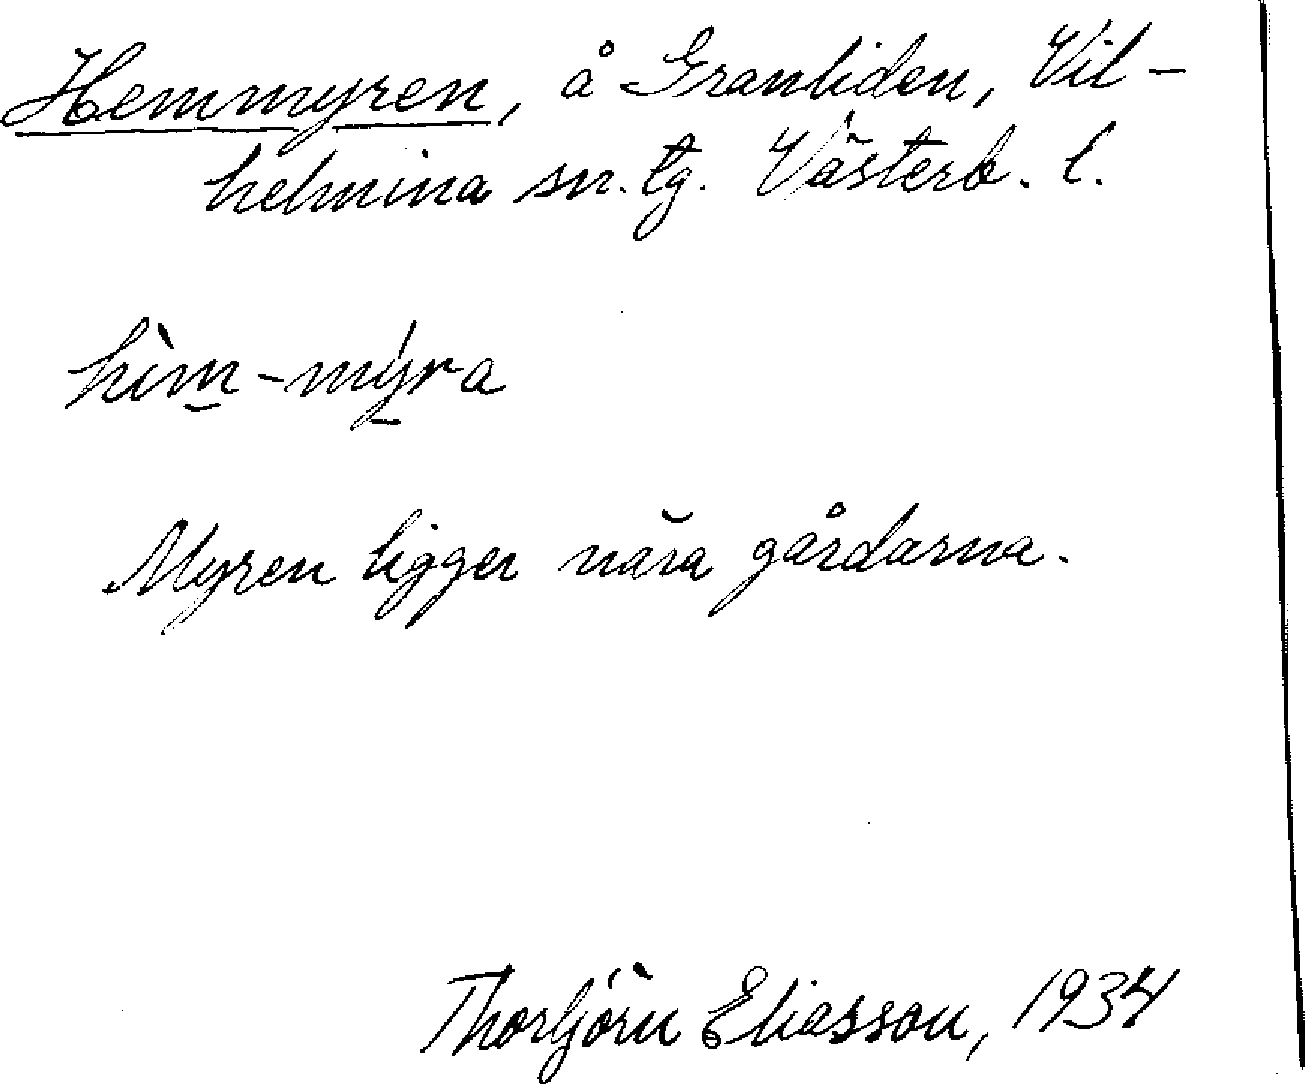 Hemmyren, å Granliden, Vil-
helmina sn. tg. Västerb. l.
hìm̲-mý̲ra
Myren ligger nära gårdarna.
Thorbjörn Eliasson, 1934